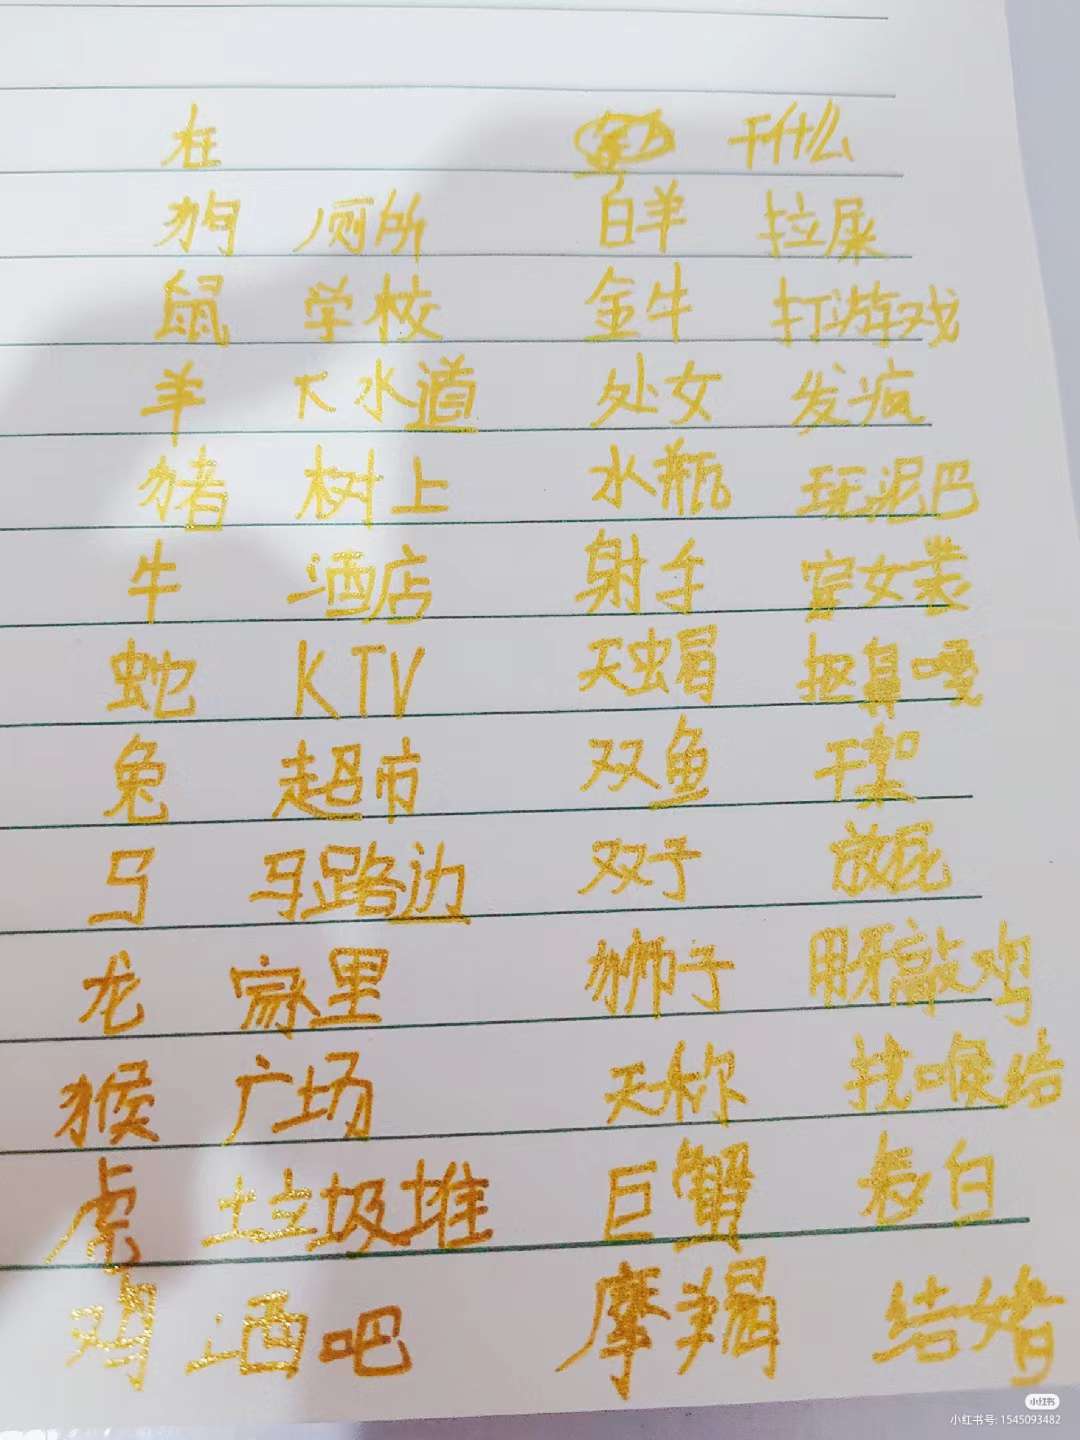 在 干什么
狗 厕所 白羊 拉屎
鼠 学校 金牛 打游戏
羊 下水道 处女 发疯
猪 树上 水瓶 玩泥巴
牛 酒店 射手 穿女装
蛇 KTV 天蝎 挖鼻嘎
兔 超市 双鱼 干架
马 马路边 双子 放屁
龙 家里 狮子 用牙敲鸡
猴 广场 天秤 找喉结
虎 垃圾堆 巨蟹 表白
鸡 酒吧 摩羯 结婚
小红书
小红书号: 1545093482